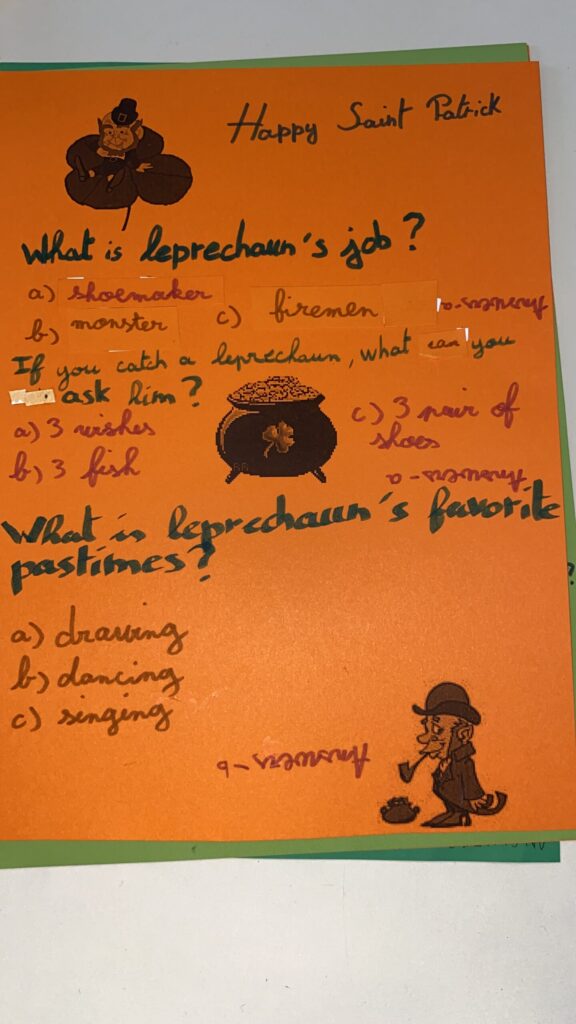 Happy Saint Patrick
What is leprechaun's job?
a) shoemaker
b) monster
c) firemen
Answers-a
If you catch a leprechaun, what can you
ask him?
a) 3 wishes
b) 3 fish
c) 3 pair of
shoes
Answers-a
What is leprechaun's favorite
pastimes?
a) drawing
b) dancing
c) singing
Answers-b